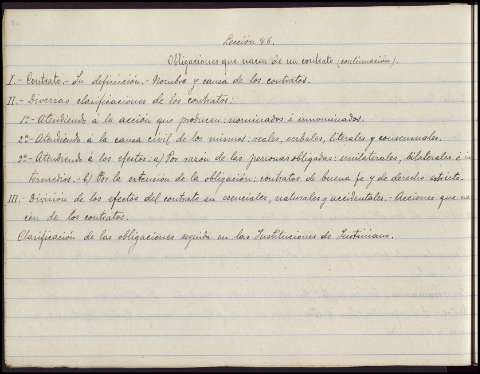 Lección 46.
Obligaciones que nacen de un contrato (continuación).
I.- Contrato.- Su definición.- Nombre y causa de los contratos.
II.- Diversas clasificaciones de los contratos:
1º- Atendiendo á la acción que producen: nominados é innominados.
2º- Atendiendo á la causa civil de los mismos: reales, verbales, literales y consensuales.
3º- Atendiendo á los efectos: a) Por razón de las personas obligadas: unilaterales, bilaterales é in
termedios.- b) Por la extensión de la obligación: contratos de buena fe y de derecho estricto.
III.- División de los efectos del contrato en esenciales, naturales y accidentales.- Acciones que na
cen de los contratos.
Clasificación de las obligaciones seguida en las Instituciones de Justiniano.